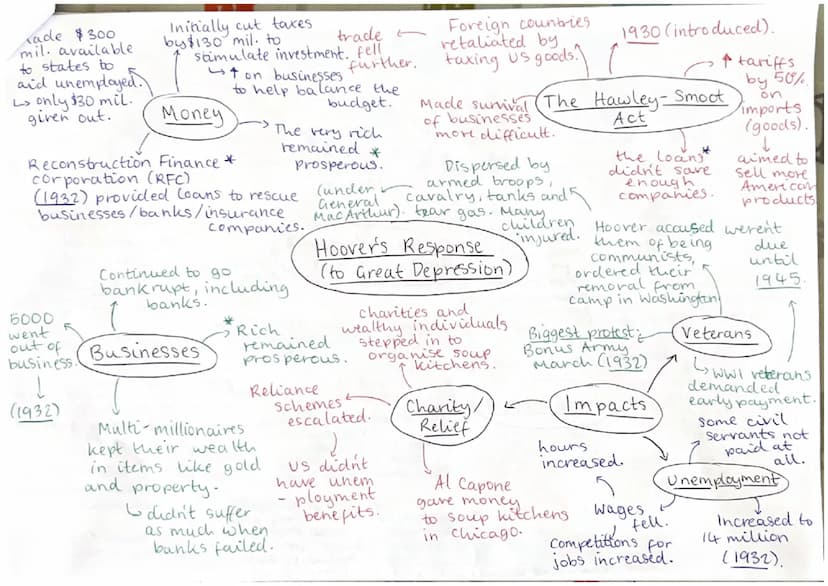 made $300
mil. available
to states to
aid unemployed.
↳ only $30 mil.
given out.
Initially cut taxes
by $130 mil. to
stimulate investment.
↳ ↑ on businesses
to help balance the
budget.
Money
The very rich
remained *
prosperous.
Reconstruction Finance *
corporation (RFC)
(1932) provided loans to rescue
businesses/banks/insurance
companies.
trade
fell
further.
Foreign countries
retaliated by
taxing US goods.
1930 (introduced).
↑ tariffs
by 50%
on
imports
(goods).
aimed to
sell more
American
products
The Hawley-Smoot
Act
Made survival
of businesses
more difficult.
the loans *
didn't save
enough
companies.
Dispersed by
armed troops,
cavalry, tanks and
tear gas. Many
children
injured.
(under
General
MacArthur).
Hoover's Response
(to Great Depression)
Hoover accused
them of being
communists,
ordered their
removal from
camp in Washington
weren't
due
until
1945.
Veterans
Biggest protest:
Bonus Army
March (1932)
↳ WWI veterans
demanded
early payment.
Continued to go
bankrupt, including
banks.
5000
went
out of
business.
(1932)
Businesses
* Rich
remained
prosperous.
Multi-millionaires
kept their wealth
in items like gold
and property.
↳ didn't suffer
as much when
banks failed.
charities and
wealthy individuals
stepped in to
organise soup
kitchens.
Reliance
schemes
escalated.
US didn't
have unem
-ployment
benefits.
Charity/
Relief
Al Capone
gave money
to soup kitchens
in Chicago.
Impacts
some civil
servants not
paid at
all.
Unemployment
hours
increased.
Wages
fell.
competitions for
jobs increased.
Increased to
14 million
(1932).